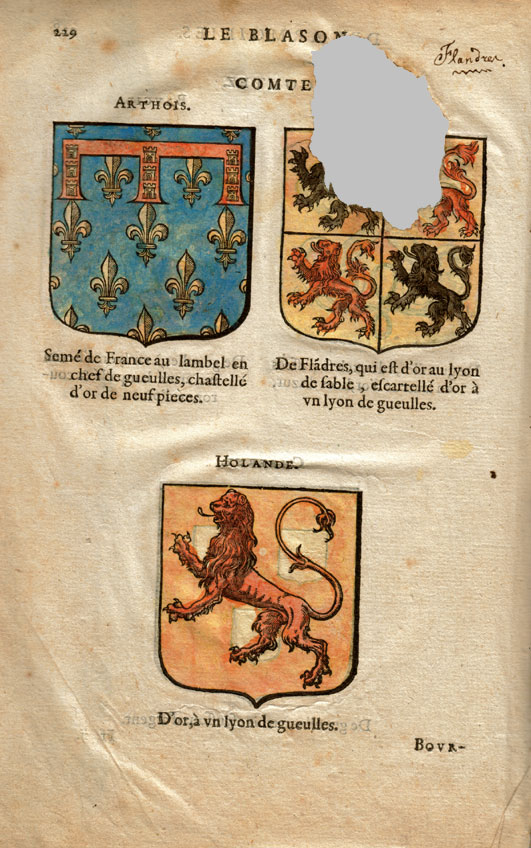 229
LE BLASON
Flandres
COMTE
ARTHOIS.
Semé de France au lambel en
chef de gueulles, chastellé
d'or de neuf pieces.
De Flãdres, qui est d'or au lyon
de sable, escartellé d'or à
vn lyon de gueulles.
HOLANDE.
D'or, à vn lyon de gueulles.
BOVR-